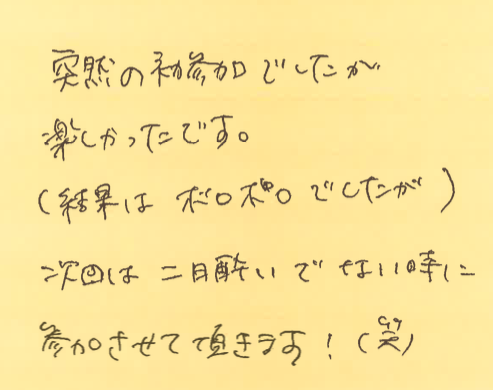 突然の初参加でしたが
楽しかったです。
(結果はボロボロでしたが)
次回は二日酔いでない時に
参加させて頂きます!(笑)